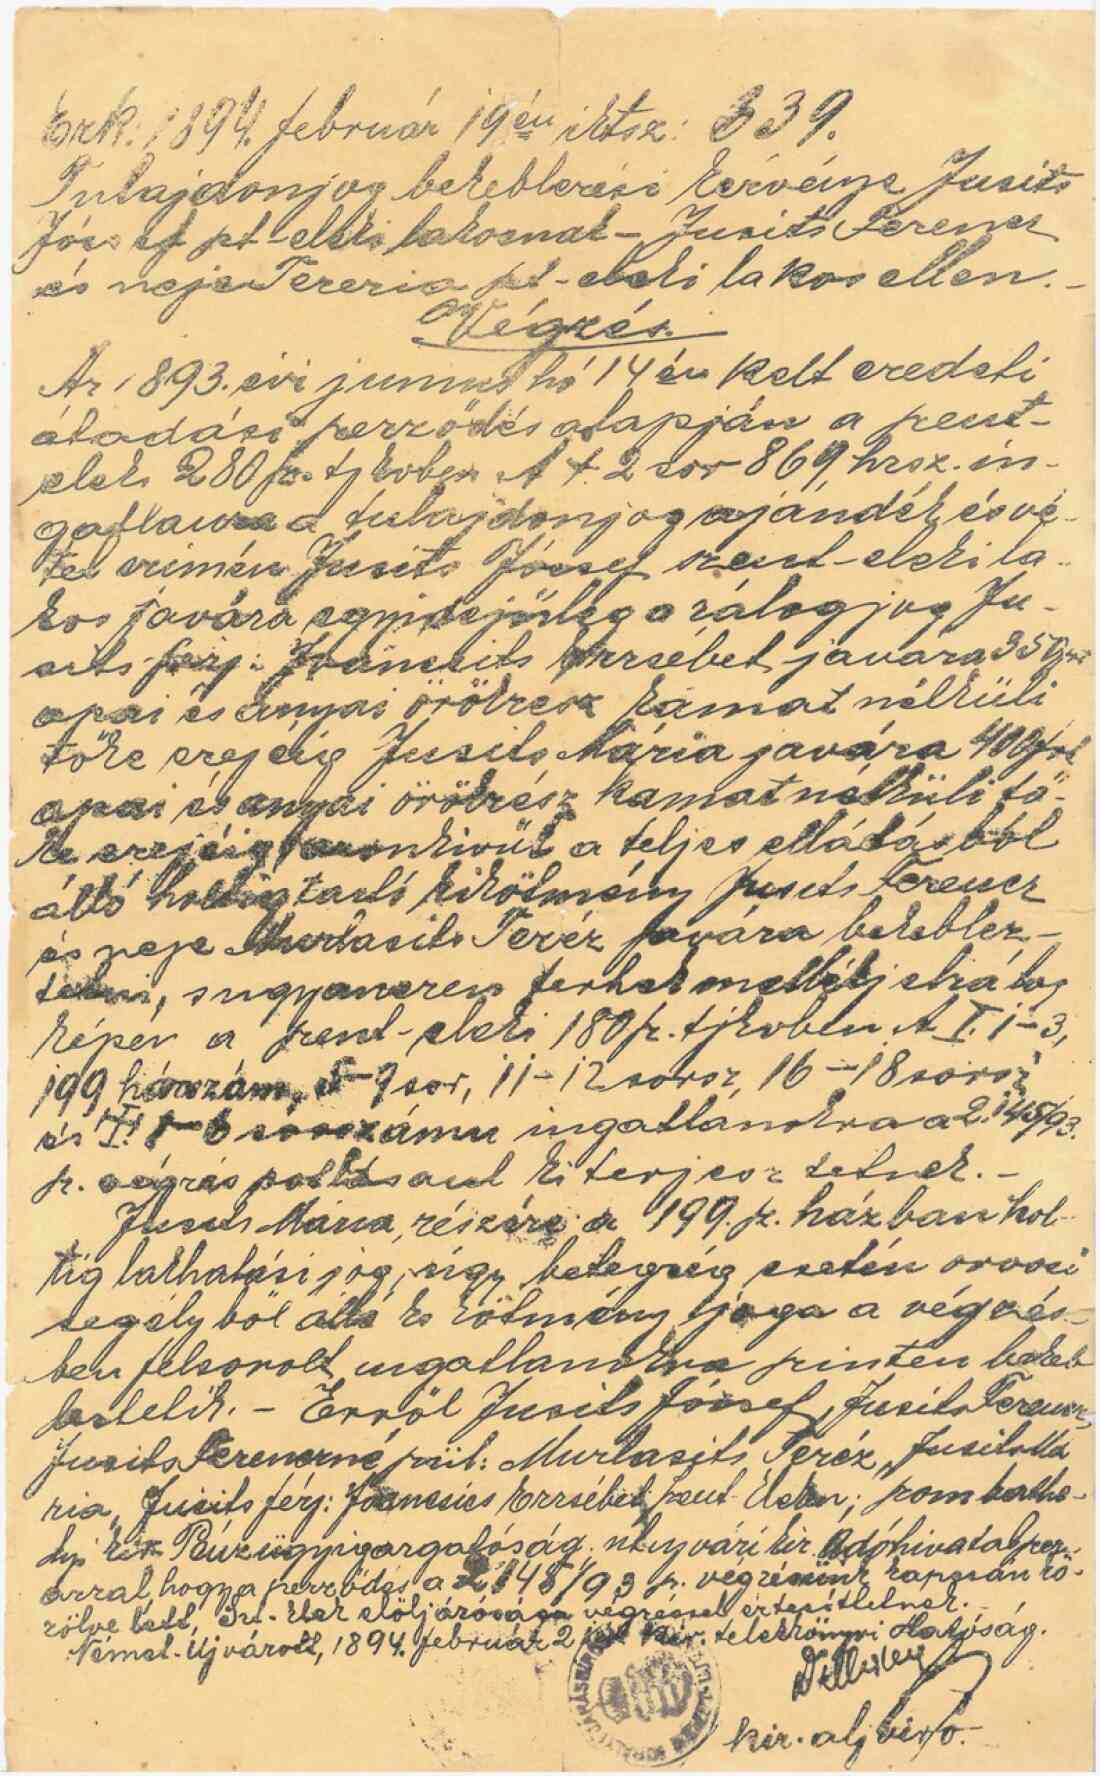 Érk: 1894. február 19 én iktsz: 339.
Tulajdonjog bekeblezési kérvénye Jusits
József pt-eleki lakosnak – Jusits Ferencz
és neje Terezia pt-eleki lakos ellen. –
Végzés.
Az 1893. évi junius hó 14 én kelt eredeti
átadási szerződés alapján a szent-
eleki 280 sz. tjkvben A † 2 sor 869, hrsz. in-
gatlanra a tulajdonjog ajándék és vé-
tel czimén Jusits József szent-eleki la-
kos javára egyidejüleg a zálogjog Ju-
sits férj: Ivancsits Erzsébet javára 350 frt
apai és anyai örökrész kamat nélküli
tőke erejéig Jusits Mária javára 400 frt
apai és anyai örökrész kamat nélküli tő-
ke erejéig, azonkivül a teljes ellátásból
álló holtigtartó kikötmény Jusits Ferencz
és neje Murlasits Teréz javára bekeblez-
tetni, s ugyanezen terhek mellékjelzálog
képen a szent-eleki 180 sz. tjkvben A I. 1–3,
199 házszám, 5–9 sor, 11–12 sorsz, 16–18 sorsz
és I. 1–6 sorszámu ingatlanokra a 2.145/93.
sz. végzés potlásaul kiterjesztetnek. –
Jusits Mária, részére a 199. sz. házban hol-
tig lakhatási jog, úgy betegség esetén orvosi
segélyből álló kikötmény joga a végzés-
ben felsorolt ingatlanokra szintén bekeb
leztetik. – Erről Jusits József, Jusits Ferencz,
Jusits Ferenczné szül: Murlasits Teréz, Jusits Má
ria, Jusits férj: Ivancsics Erzsébet szent Eleken; szombathe-
lyi kir. Pénzügyigazgatóság. n. ujvári kir. Adóhivatal
azzal hogy a szerződés a 2145/93 sz. végzésünk kapcsán
közölve lett, Szt.-Elek elöljárósága végzéssel értesittetnek.
Német-Ujvárott, 1894. február 2 kir. telekkönyvi Hatóság.
kir. aljbiró.